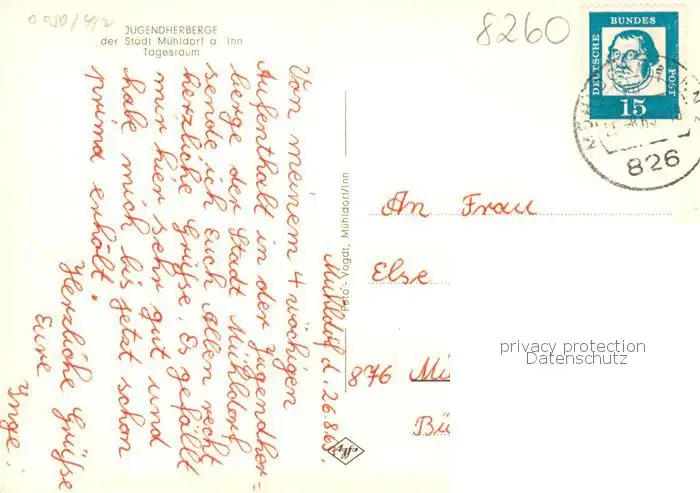 0050/4/2
8260
JUGENDHERBERGE
der Stadt Mühldorf a. Inn
Tagesraum
DEUTSCHE
BUNDES
POST
15
826
Mühldorf d. 26.8.63.
Von meinem 4 wöchigen
Aufenthalt in der Jugendher-
berge der Stadt Mühldorf
sende ich Euch Allen recht
herzliche Grüße. Es gefällt
mir hier sehr gut und
habe mich bis jetzt schon
prima erholt.
Herzliche Grüße
Eure
Inge.
Foto-Vogdt, Mühldorf/Inn
Agfa
An Frau
Else
876 Mü
Bü
privacy protection
Datenschutz